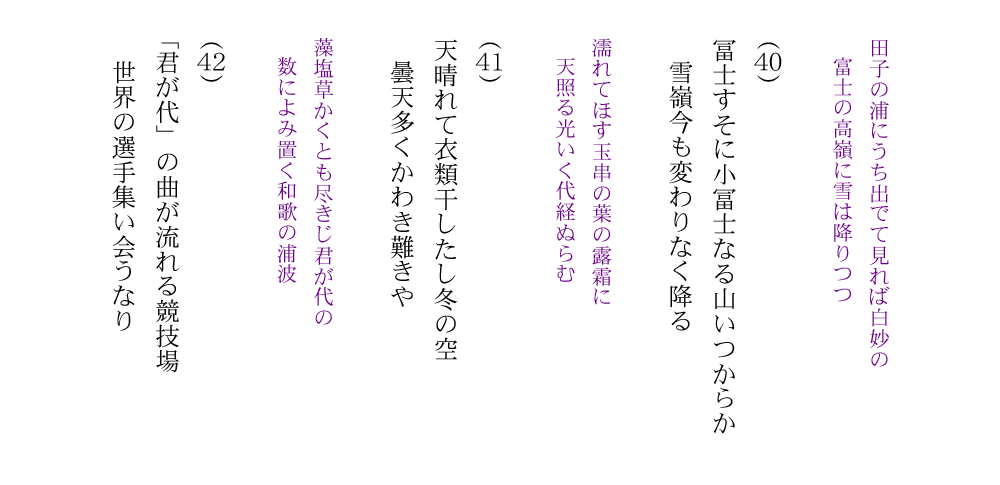 田子の浦にうち出でて見れば白妙の
富士の高嶺に雪は降りつつ
(40)
冨士すそに小冨士なる山いつからか
雪嶺今も変わりなく降る
濡れてほす玉串の葉の露霜に
天照る光いく代経ぬらむ
(41)
天晴れて衣類干したし冬の空
曇天多くかわき難きや
藻塩草かくとも尽きじ君が代の
数によみ置く和歌の浦波
(42)
「君が代」の曲が流れる競技場
世界の選手集い会うなり